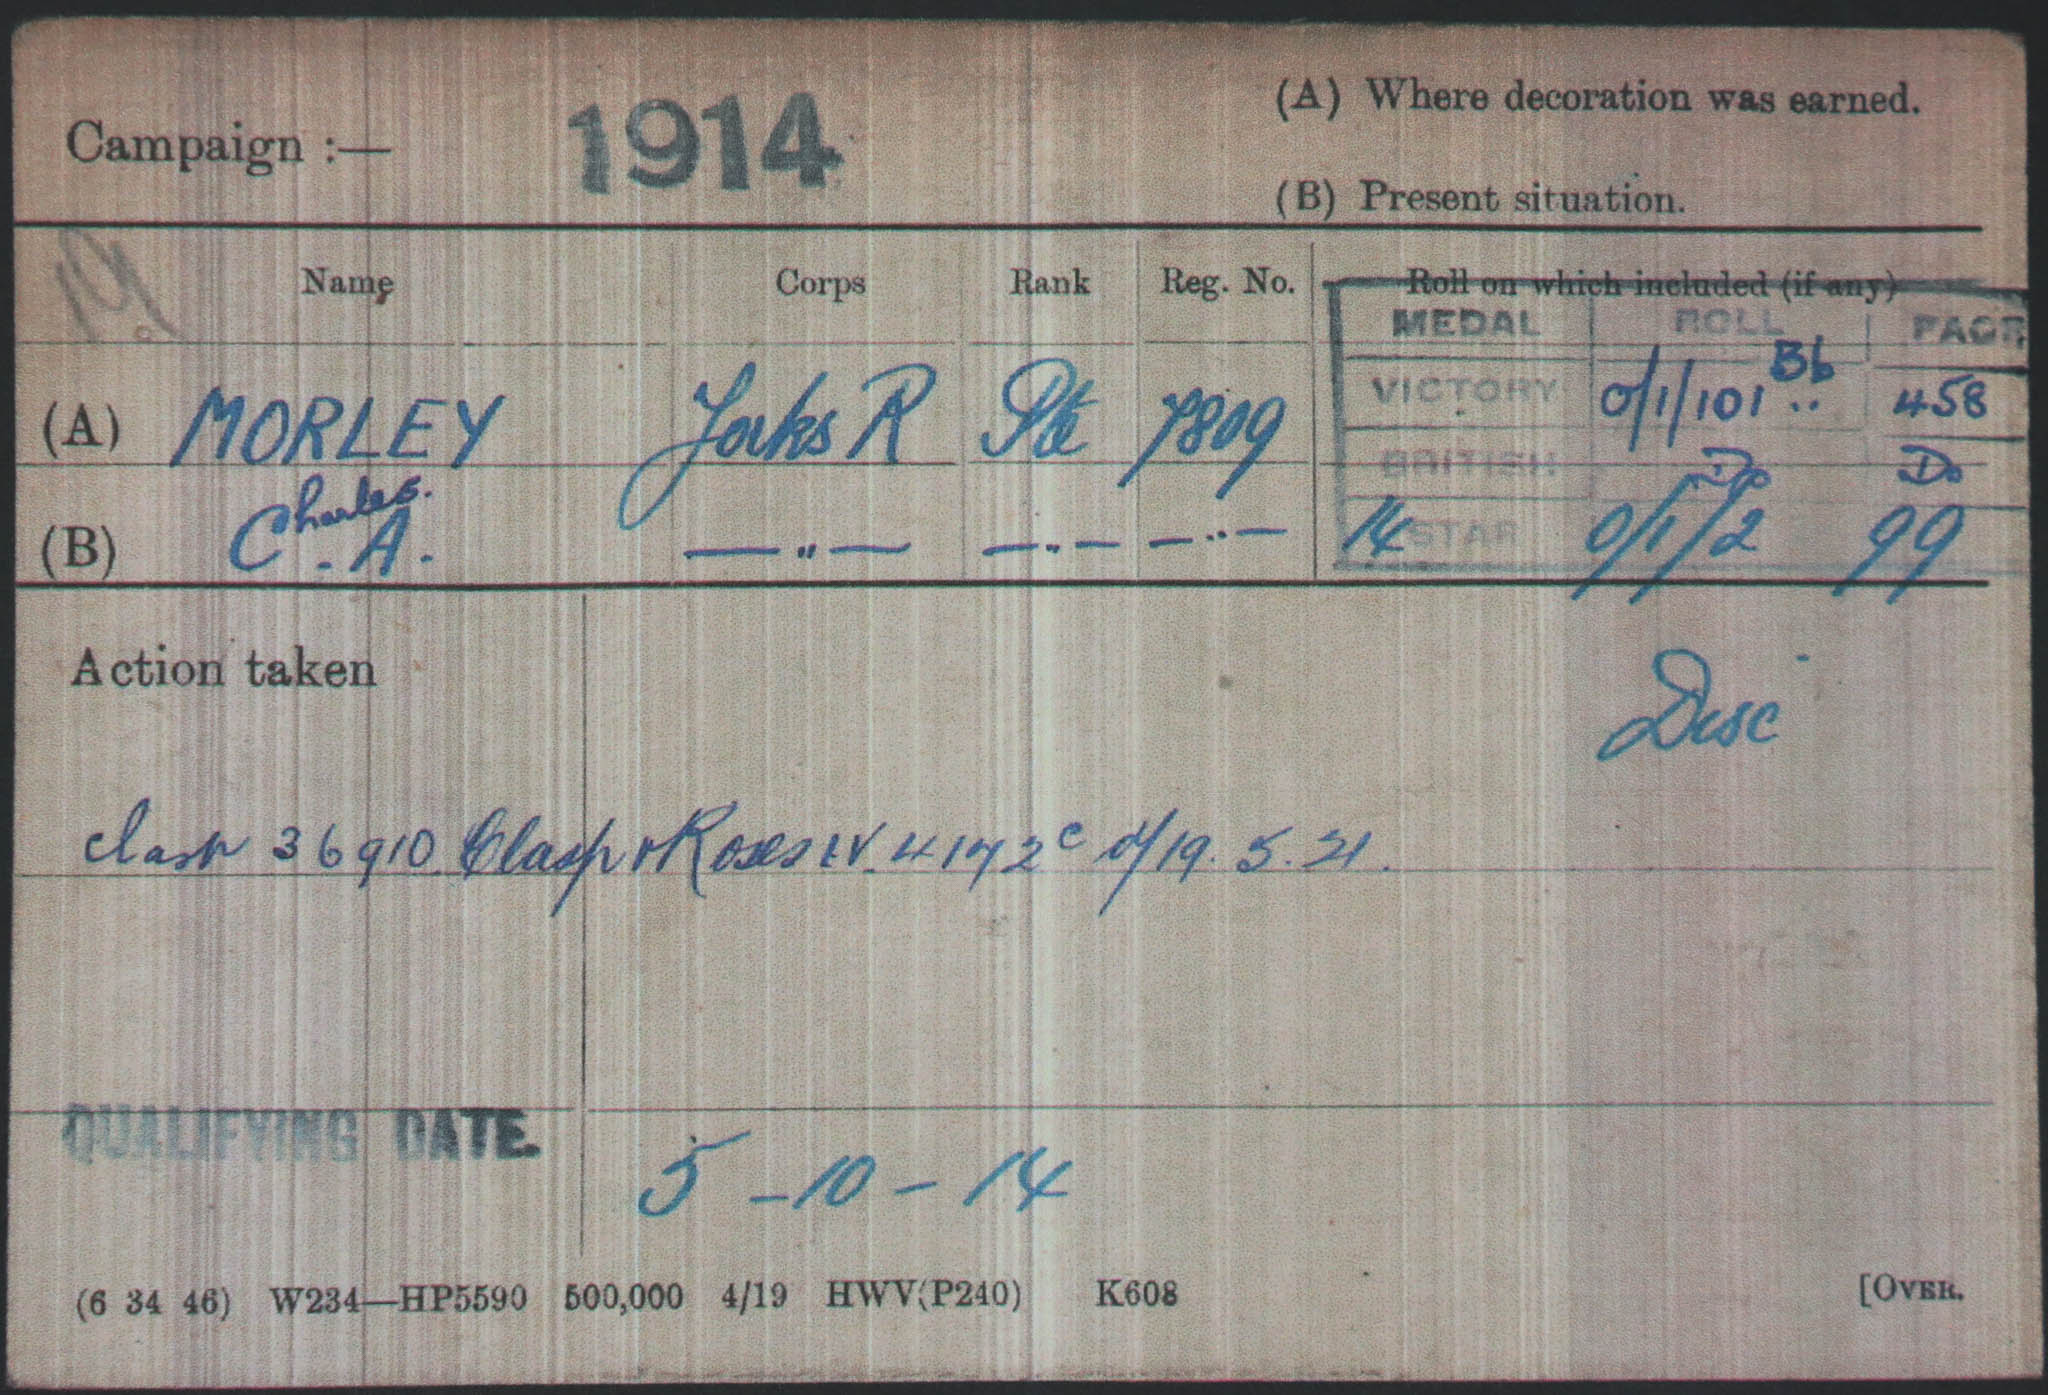 Campaign :— 1914
(A) Where decoration was earned.
(B) Present situation.
Name Corps Rank Reg. No. Roll on which included (if any)
MEDAL ROLL PAGE
(A) MORLEY Yorks R Pte 7809 VICTORY O/1/101 B6 458
BRITISH Do Do
Charles.
(B) C. A. —"— —"— —"— 14 STAR O/1/2 99
Action taken
Disc
Clasp 36910 Clasp & Roses IV. 4172c d/19. 5. 21.
QUALIFYING DATE. 5 - 10 - 14
(6 34 46) W234—HP5590 500,000 4/19 HWV(P240) K608 [OVER.